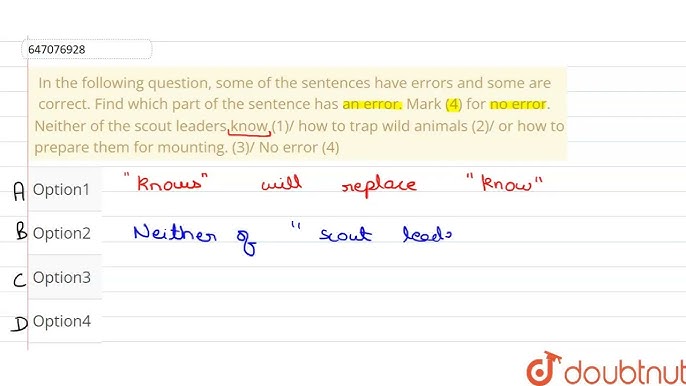 647076928
In the following question, some of the sentences have errors and some are
correct. Find which part of the sentence has an error. Mark (4) for no error.
Neither of the scout leaders know (1)/ how to trap wild animals (2)/ or how to
prepare them for mounting. (3)/ No error (4)
A Option1 "knows" will replace "know"
B Option2 Neither of " scout leade
C Option3
D Option4
doubtnut